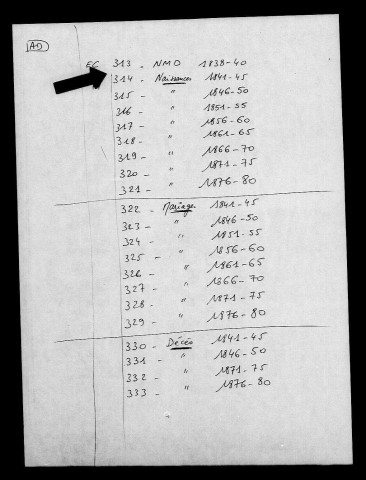 AD
EC 313 - NMD 1838-40
314 - Naissances 1841-45
315 - " 1846-50
316 - " 1851-55
317 - " 1856-60
318 - " 1861-65
319 - " 1866-70
320 - " 1871-75
321 - " 1876-80
322 - Mariages 1841-45
323 - " 1846-50
324 - " 1851-55
325 - " 1856-60
326 - " 1861-65
327 - " 1866-70
328 - " 1871-75
329 - " 1876-80
330 - Décès 1841-45
331 - " 1846-50
332 - " 1871-75
333 - " 1876-80